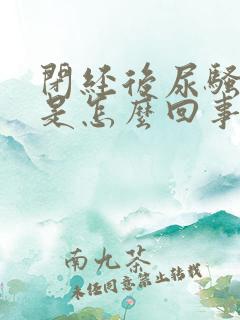 閉經後尿騷
是怎麼回事
南九茶
未經同意禁止轉載